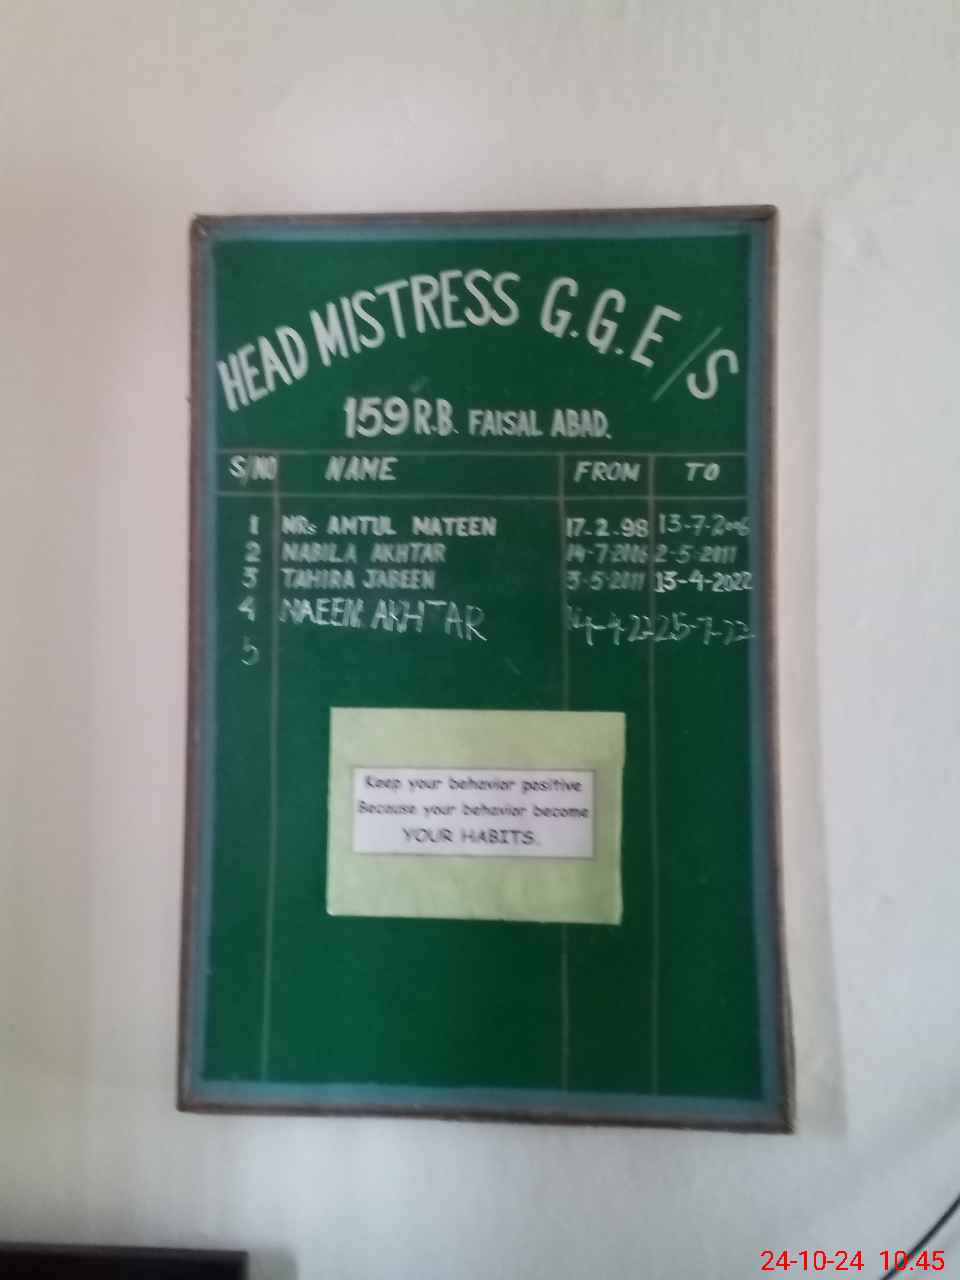 HEAD MISTRESS G.G.E/S
159 R.B. FAISAL ABAD.
S/NO NAME FROM TO
1 MRs AMTUL MATEEN 17.2.98 13-7-2006
2 NABILA AKHTAR 14-7-2006 2-5-2011
3 TAHIRA JABEEN 3-5-2011 13-4-2022
4 NAEEM AKHTAR 14-4-22 25-7-22
5
Keep your behavior positive
Because your behavior become
YOUR HABITS.
24-10-24 10:45